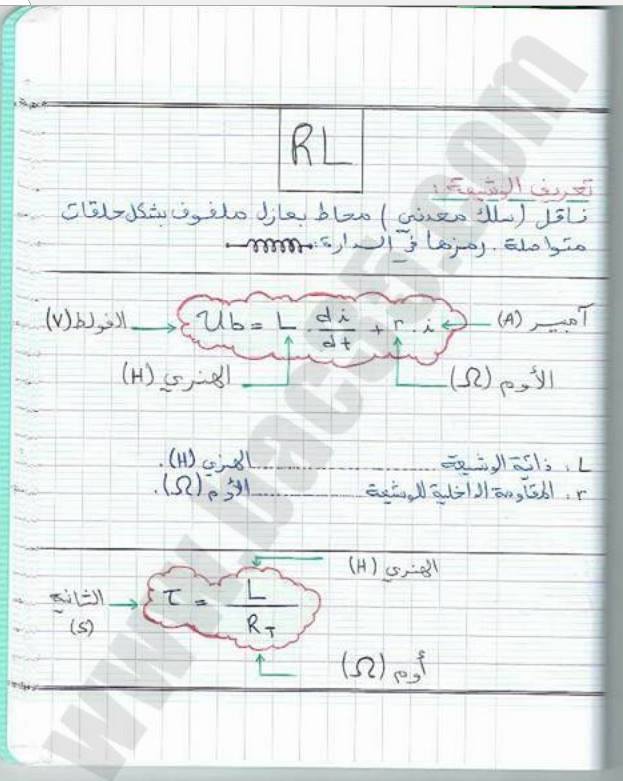 RL
تعريف الوشيعة:
ناقل (سلك معدني) محاط بعازل ملفوف بشكل حلقات
متواصلة. رمزها في الدارة:
الفولط (V) Ub = L . di/dt + r . i آمبير (A)
الهنري (H) الأوم (Ω)
L: ذاتية الوشيعة ............ الهنري (H).
r: المقاومة الداخلية للوشيعة ............ الأوم (Ω).
الهنري (H)
الثانية (s) τ = L / R_T
أوم (Ω)
www.bac35.com